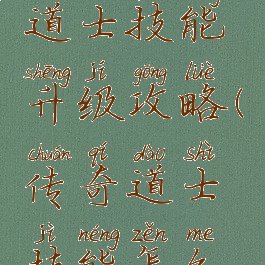 道士技能
shēng jí gōng lüè
升级攻略(
chuán qí dào shì
传奇道士
jì néng zěn me
技能怎么